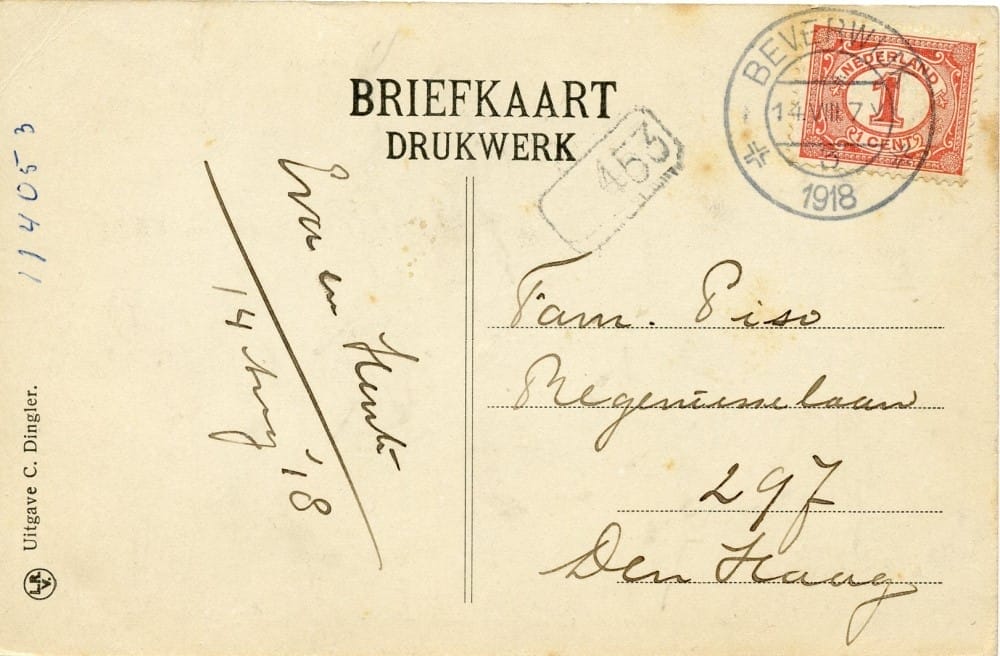 BRIEFKAART
DRUKWERK
BEVERWIJK
14.VIII. 7 V
1918
NEDERLAND
1
1 CENT
453
11 4053
Eva en
14 Aug '18
Fam. Piso
Regentesselaan
297
Den Haag
Uitgave C. Dingler.
L.R.V.